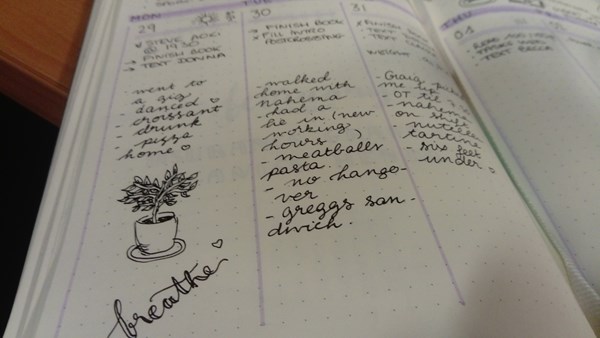 MON
29
STEVE AOKI
@ 19:30
→ FINISH BOOK
→ TEXT DONNA
- went to
a gig
- danced ♡
- croissant
- drunk
- pizza
home ♡
breathe ♡
30
→ FINISH BOOK
× FILL INTRO
- walked
home with
Nahema
- had a
lie in (new
working
hours)
- meatballs
pasta.
- no hango-
ver
- greggs san-
dwich.
31
FINISH
TEXT
TEXT
- Craig
me up
- OT til
- nahema
on shift
- nutella
tartine
- six feet
under
THU
01
- READ 100
- TEXT BECCA